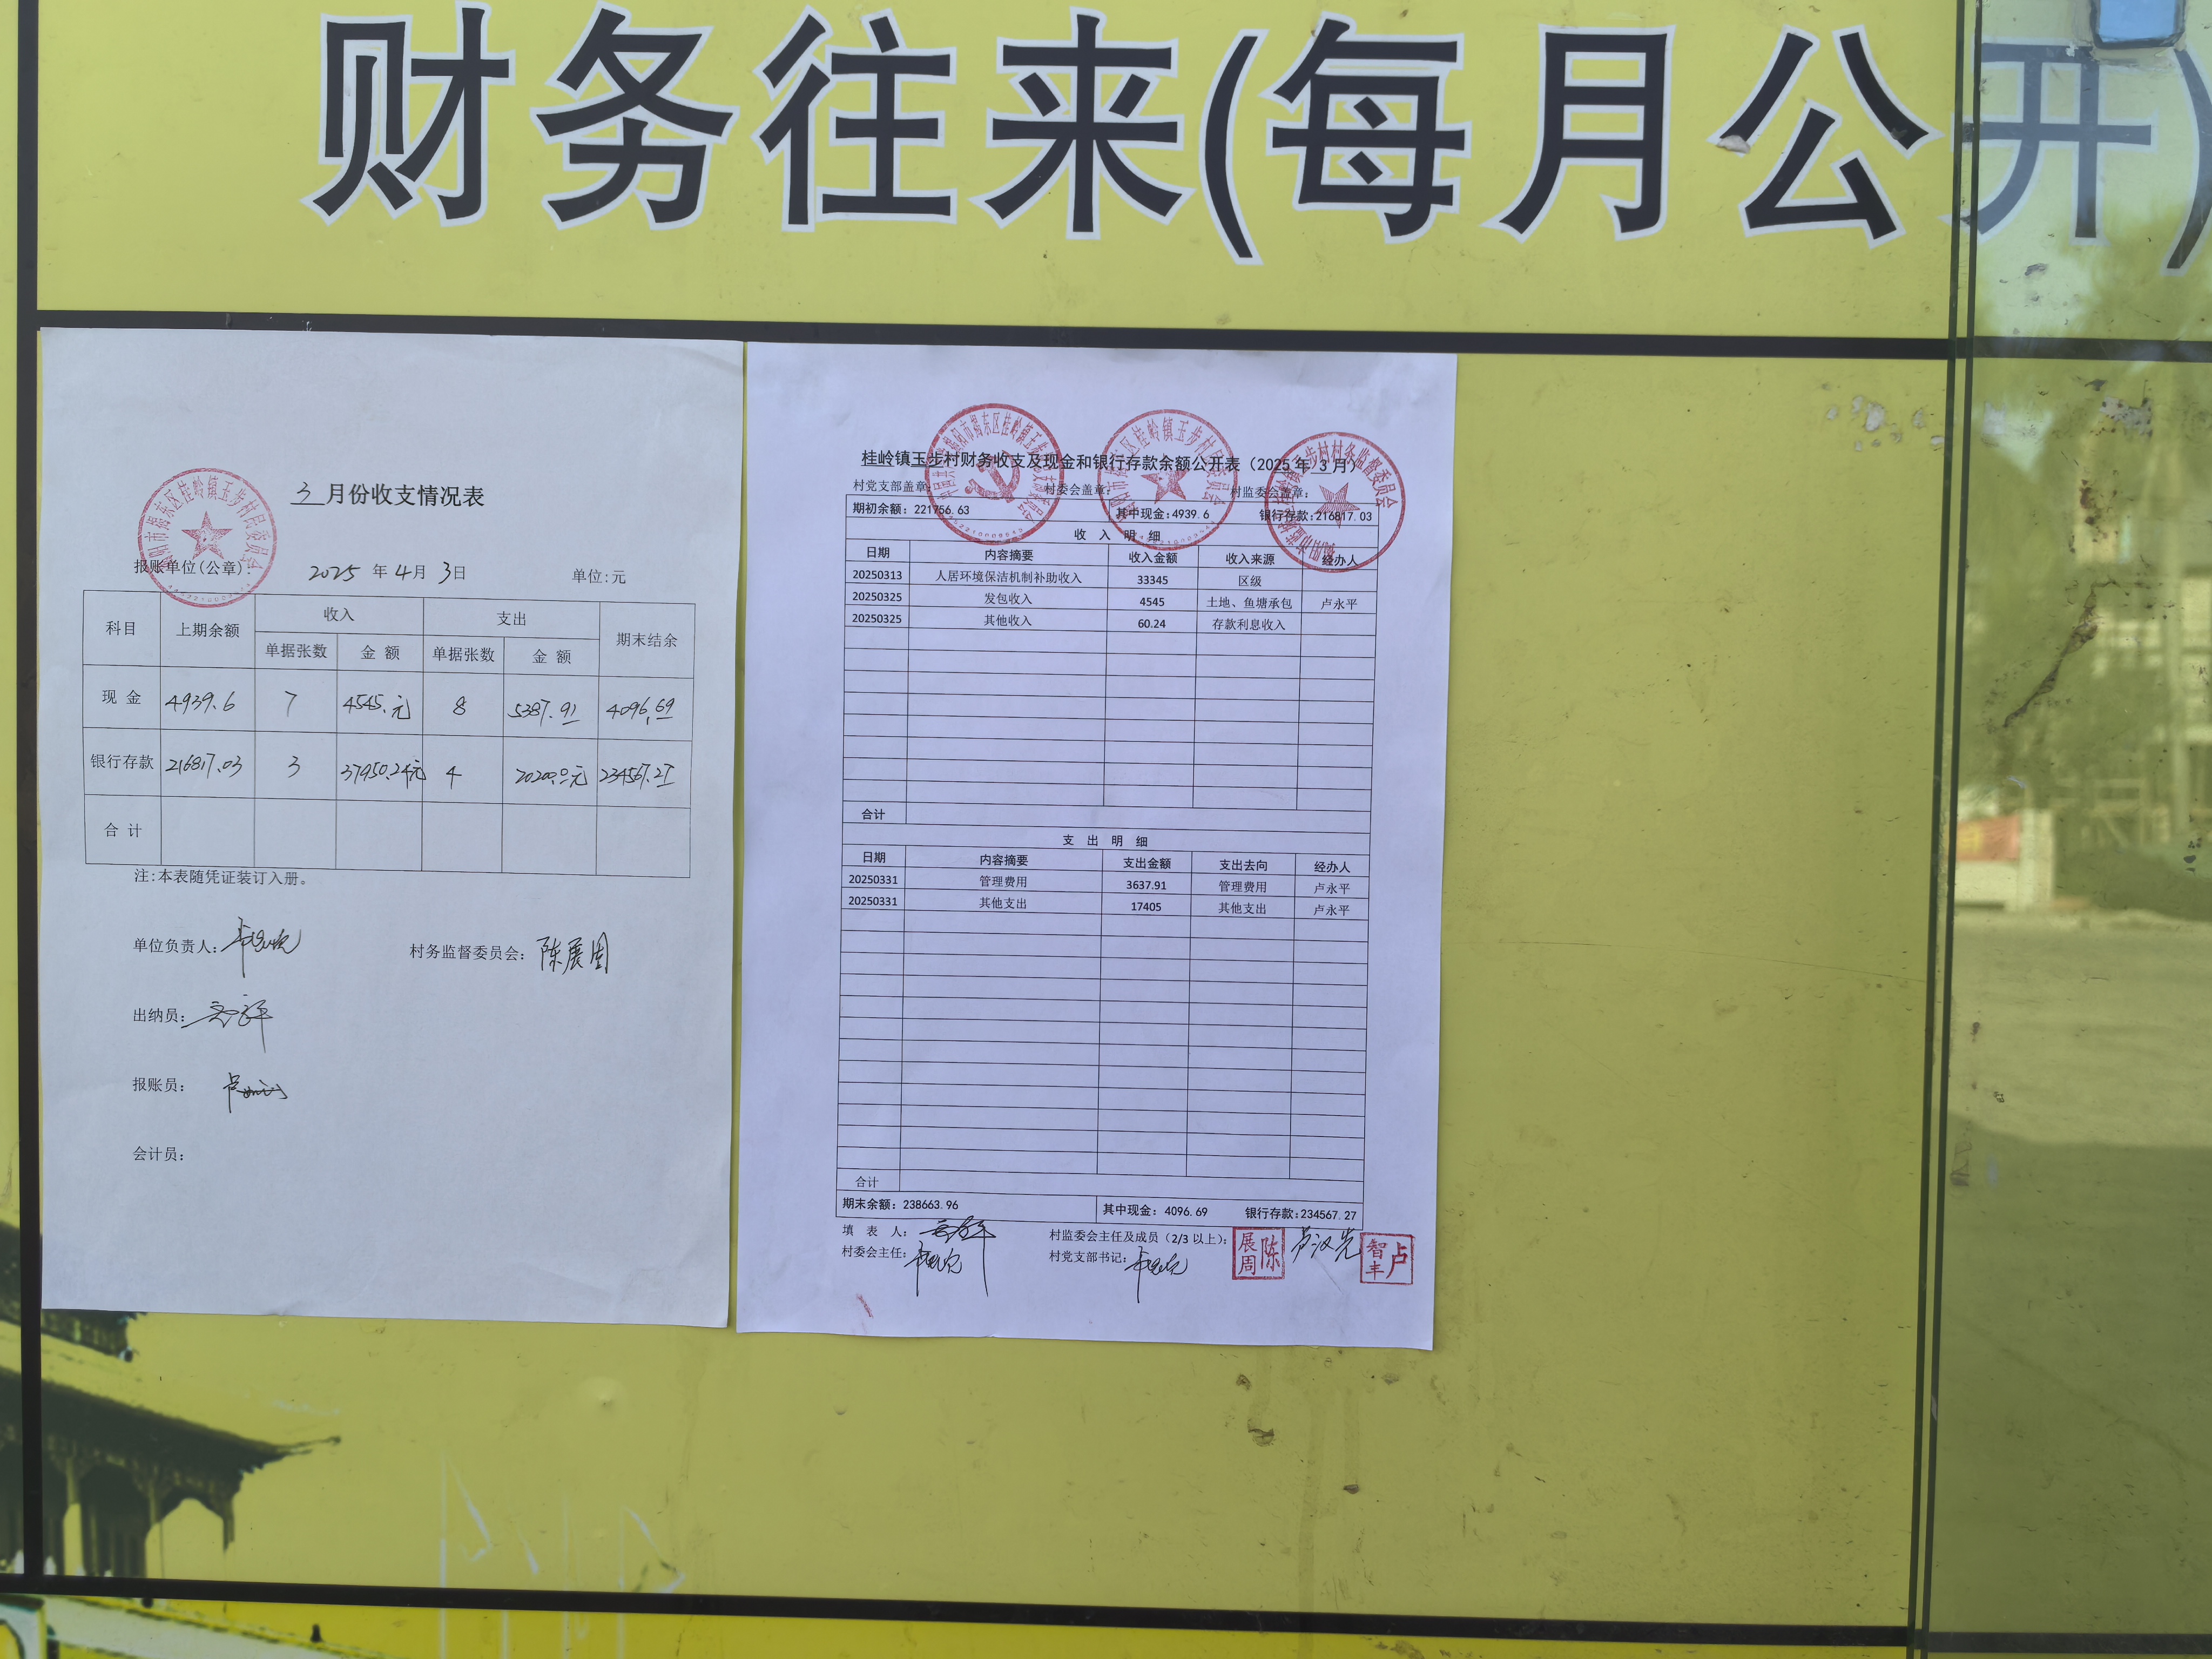 财务往来(每月公开)
三月份收支情况表
报账单位(公章): 2025 年 4 月 3 日 单位:元
科目 上期余额 收入 支出 期末结余
单据张数 金 额 单据张数 金 额
现 金 4939.6 7 4545.元 8 5387.91 4096.69
银行存款 216817.03 3 37950.24元 4 20200.0元 234567.27
合 计
注:本表随凭证装订入册。
单位负责人: 村务监督委员会: 陈展周
出纳员:
报账员:
会计员:
桂岭镇玉步村财务收支及现金和银行存款余额公开表（2025 年 3 月）
村党支部盖章: 村委会盖章: 村监委会盖章:
期初余额: 221756.63 其中现金:4939.6 银行存款:216817.03
收 入 明 细
日期 内容摘要 收入金额 收入来源 经办人
20250313 人居环境保洁机制补助收入 33345 区级
20250325 发包收入 4545 土地、鱼塘承包 卢永平
20250325 其他收入 60.24 存款利息收入
合计
支 出 明 细
日期 内容摘要 支出金额 支出去向 经办人
20250331 管理费用 3637.91 管理费用 卢永平
20250331 其他支出 17405 其他支出 卢永平
合计
期末余额: 238663.96 其中现金: 4096.69 银行存款:234567.27
填 表 人: 村监委会主任及成员（2/3 以上）: 陈展周 卢汉光 卢智丰
村委会主任: 村党支部书记: